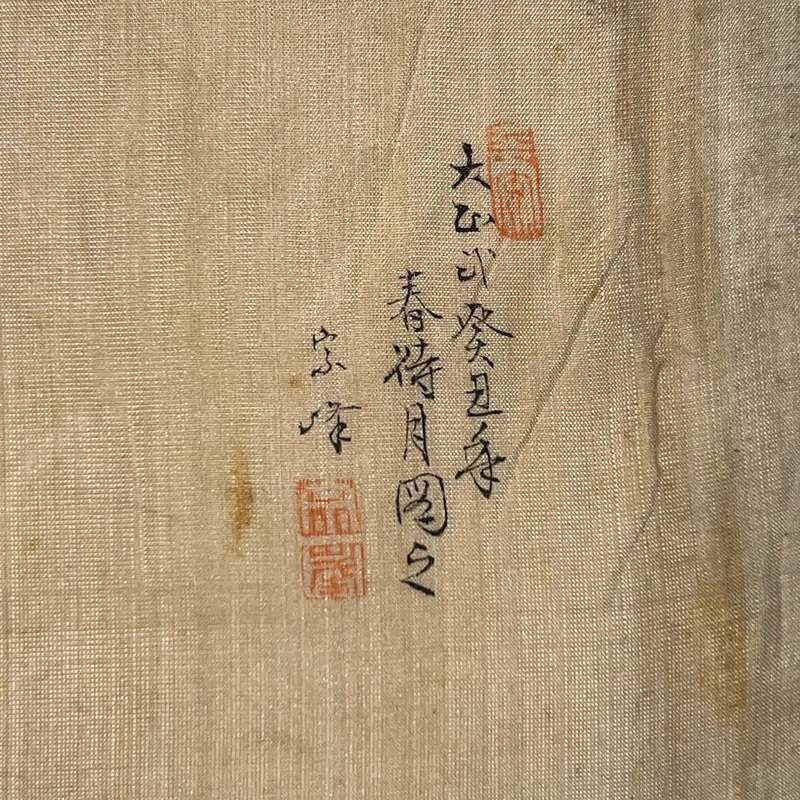 大正弐癸丑年
春待月図之
宗峰